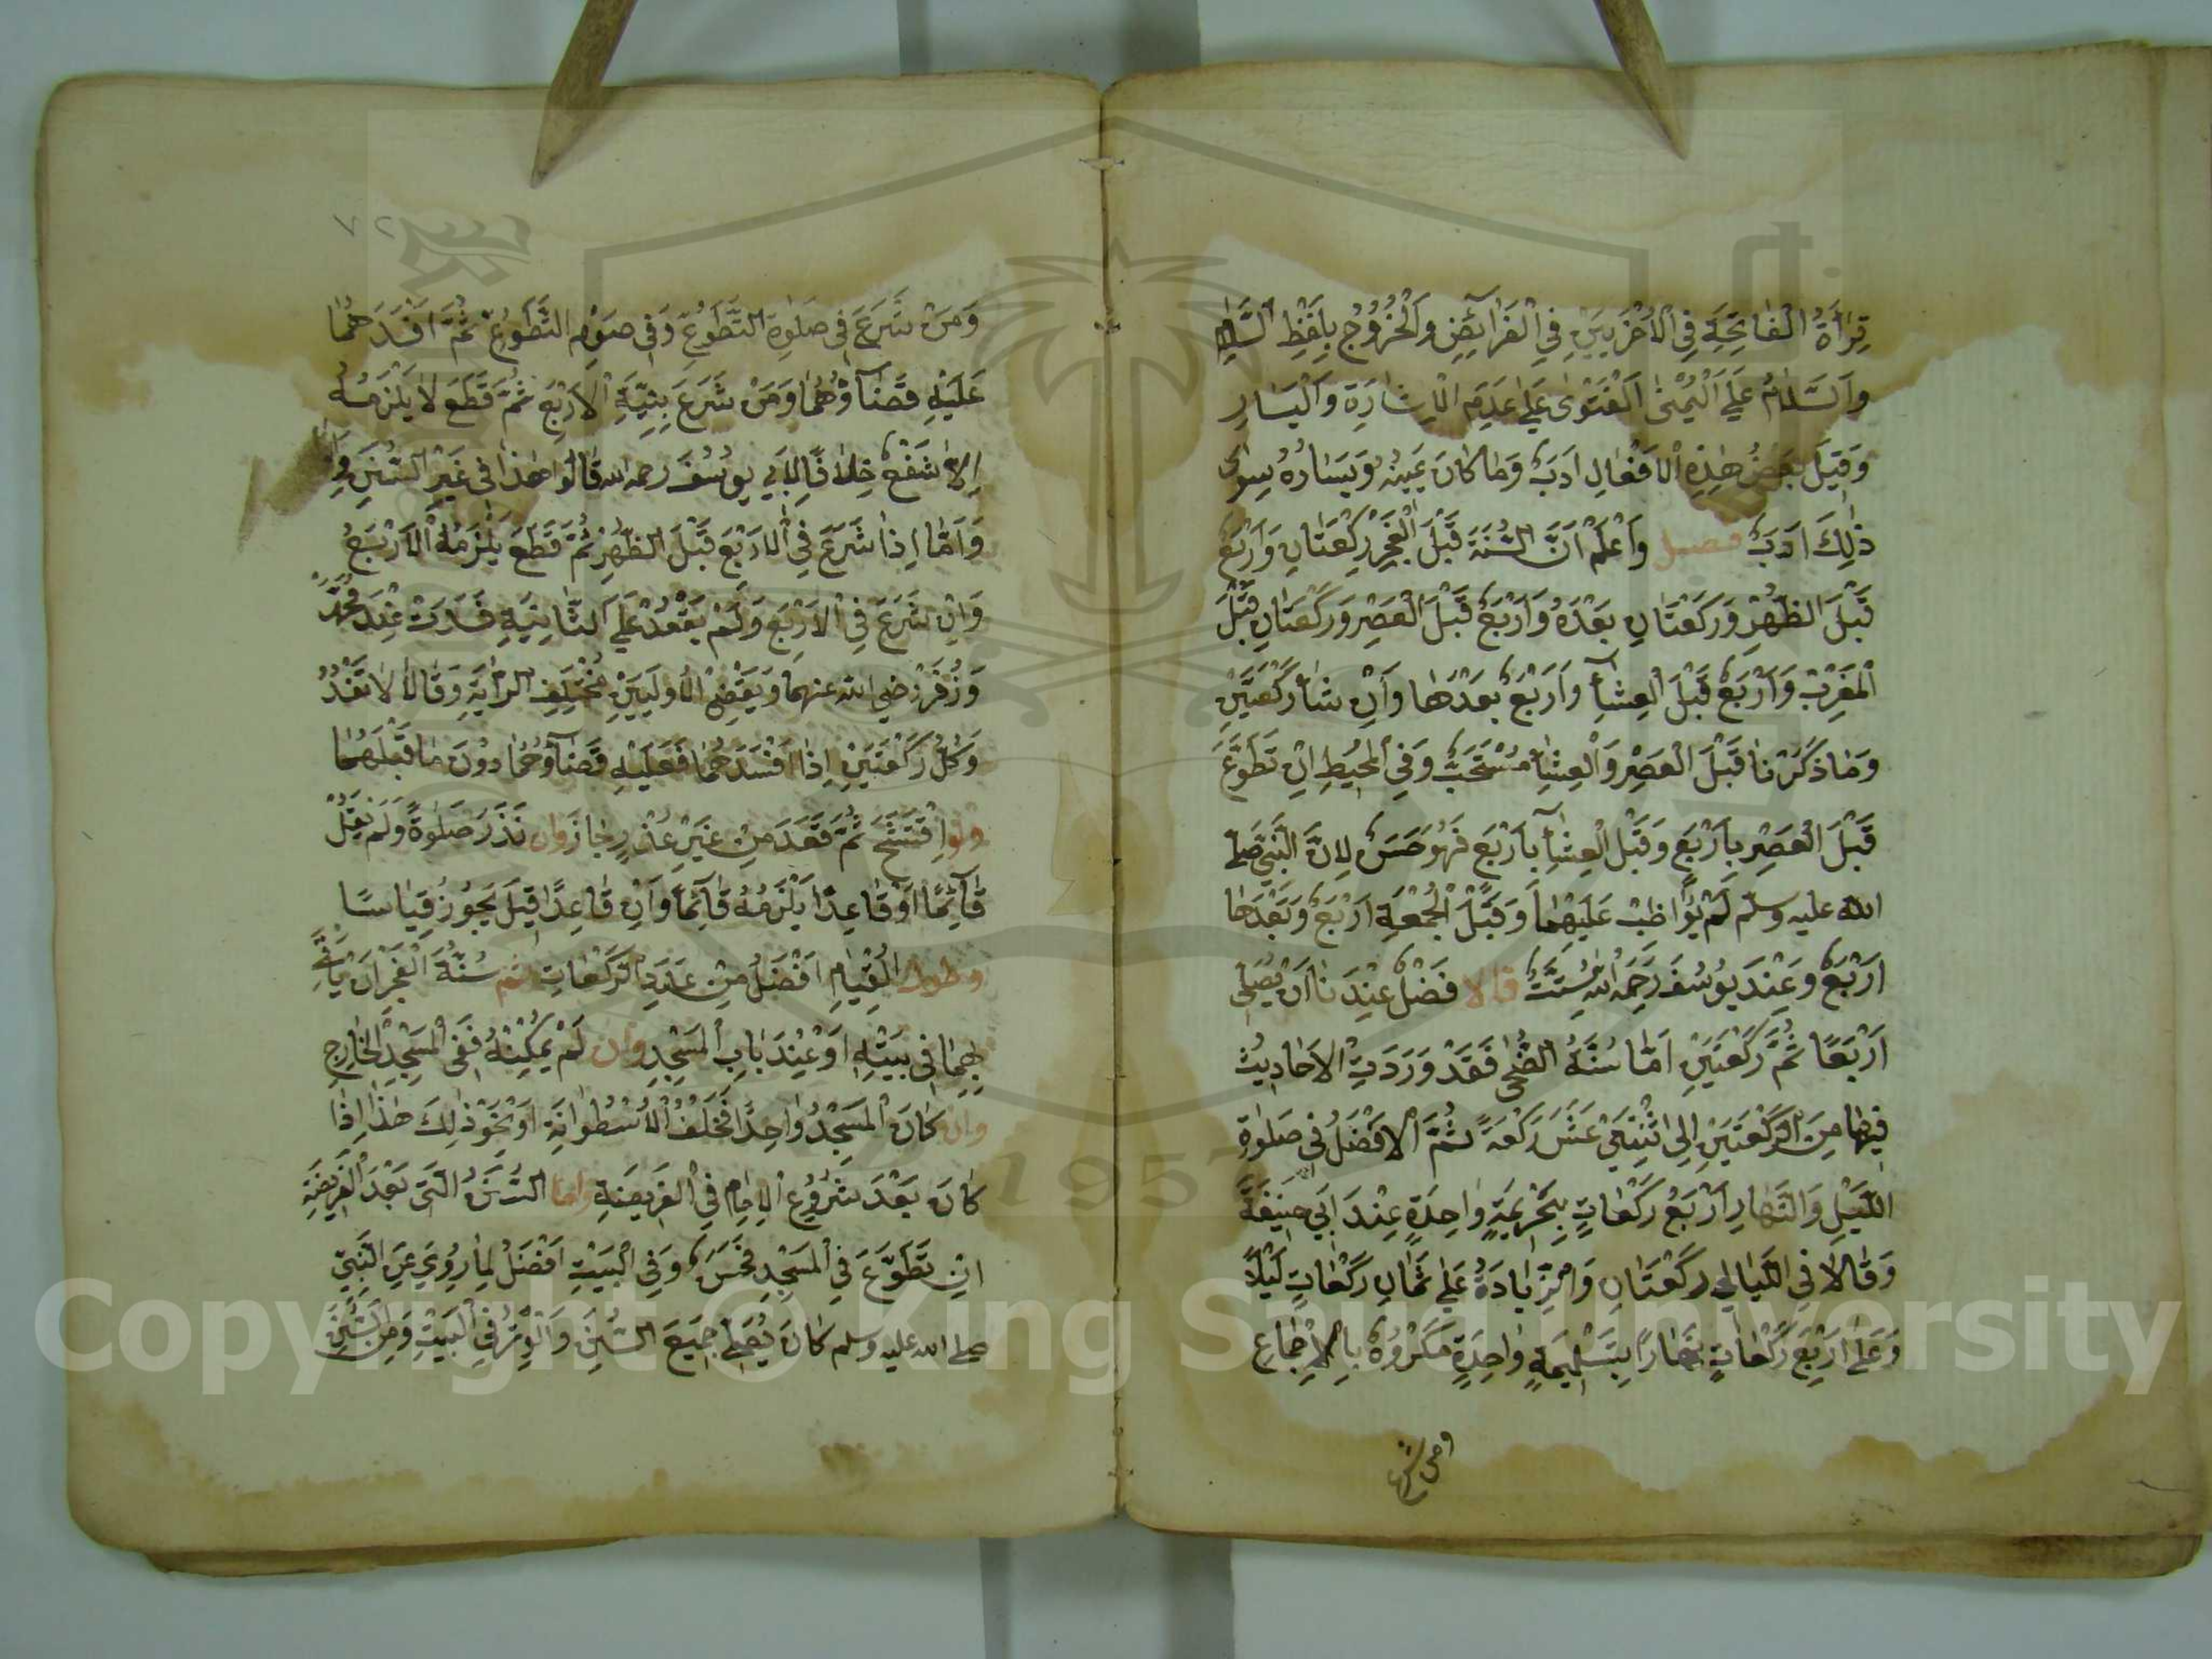 قِرَأَةُ الْفَاتِحَةِ فِي الْاُخْرَيَيْنِ فِي الْفَرَائِضِ وَالْخُرُوُجُ بِلَفْظِ السَّلَامِ
وَالسَّلَامُ عَلَي الْيُمْنَي اَلْفَتْوَى عَلَي عَدَمِ الْاِشَارَةِ وَالْيَسَارِ
وَقِيلَ بَعْضُ هٰذِهِ الْاَفْعَالِ اَدَبٌ وَمَا كَانَ يَمِينُهُ وَيَسَارُهُ سِوَى
ذٰلِكَ اَدَبٌ فصل وَاعْلَمْ اَنَّ السُّنَّةَ قَبْلَ الْفَجْرِ رَكْعَتَانِ وَاَرْبَعٌ
قَبْلَ الظُّهْرِ وَرَكْعَتَانِ بَعْدَهُ وَاَرْبَعٌ قَبْلَ الْعَصْرِ وَرَكْعَتَانِ قَبْلَ
الْمَغْرِبِ وَاَرْبَعٌ قَبْلَ الْعِشَاءِ وَاَرْبَعٌ بَعْدَهَا وَاِنْ شَاءَ رَكْعَتَيْنِ
وَمَا ذَكَرْنَا قَبْلَ الْعَصْرِ وَالْعِشَاءِ مُسْتَحَبٌّ وَفِي الْمُحِيطِ اِنْ تَطَوَّعَ
قَبْلَ الْعَصْرِ بِاَرْبَعٍ وَقَبْلَ الْعِشَاءِ بِاَرْبَعٍ فَهُوَ حَسَنٌ لِاَنَّ النَّبِيَّ صلى
الله عليه وسلم لَمْ يُوَاظِبْ عَلَيْهِمَا وَقَبْلَ الْجُمْعَةِ اَرْبَعٌ وَبَعْدَهَا
اَرْبَعٌ وَعِنْدَ يُوسُفَ رَحِمَهُ اللهُ سِتٌّ قالا فَضْلُ عِنْدَنَا اَنْ يُصَلِّيَ
اَرْبَعًا ثُمَّ رَكْعَتَيْنِ اَمَّا سُنَّةُ الضُّحَى فَقَدْ وَرَدَتِ الْاَحَادِيثُ
فِيهَا مِنَ الرَّكْعَتَيْنِ اِلَى اثْنَتَيْ عَشَرَ رَكْعَةً ثُمَّ الْاَفْضَلُ فِي صَلٰوةِ
اللَّيْلِ وَالنَّهَارِ اَرْبَعُ رَكْعَاتٍ بِتَحْرِيمَةٍ وَاحِدَةٍ عِنْدَ اَبِي حَنِيفَةَ
وَقَالَا فِي اللَّيَالِي رَكْعَتَانِ وَالزِّيَادَةُ عَلَي ثَمَانِ رَكْعَاتٍ لَيْلًا
وَعَلَى اَرْبَعِ رَكْعَاتٍ نَهَارًا بِتَسْلِيمَةٍ وَاحِدَةٍ مَكْرُوهٌ بِالْاِجْمَاعِ
ومن شرع
٧٢
وَمَنْ شَرَعَ فِي صَلٰوةِ التَّطَوُّعِ وَفِي صَوْمِ التَّطَوُّعِ ثُمَّ اَفْسَدَهُمَا
عَلَيْهِ قَضَاؤُهُمَا وَمَنْ شَرَعَ بِنِيَّةِ الْاَرْبَعِ ثُمَّ قَطَعَ لَا يَلْزَمُهُ
اِلَّا شَفْعٌ خِلَافًا لِاَبِي يُوسُفَ رحمه الله قَالُوا هٰذَا فِي غَيْرِ السُّنَنِ
وَاَمَّا اِذَا شَرَعَ فِي الْاَرْبَعِ قَبْلَ الظُّهْرِ ثُمَّ قَطَعَ يَلْزَمُهُ الْاَرْبَعُ
وَاِنْ شَرَعَ فِي الْاَرْبَعِ وَلَمْ يَقْعُدْ عَلَي الثَّانِيَةِ فَسَدَتْ عِنْدَ مُحَمَّدٍ
وَزُفَرَ رضي الله عنهما وَيَقْضِي الْاُولَيَيْنِ مُخْتَلِفِ الرِّوَايَةِ وَقَالَا لَا تَفْسُدُ
وَكُلُّ رَكْعَتَيْنِ اِذَا اَفْسَدَهُمَا فَعَلَيْهِ قَضَاؤُهُمَا دُونَ مَا قَبْلَهُمَا
ولو افْتَتَحَ ثُمَّ قَعَدَ مِنْ غَيْرِ عُذْرٍ جَازَ وان نَذَرَ صَلٰوةً وَلَمْ يَقُلْ
قَائِمًا اَوْ قَاعِدًا يَلْزَمُهُ قَائِمًا وَاِنْ قَاعِدًا قِيلَ يَجُوزُ قِيَاسًا
وطول الْقِيَامِ اَفْضَلُ مِنْ عَدَدِ الرَّكْعَاتِ ثم سُنَّةُ الْفَجْرِ اَنْ يَأْتِيَ
بِهِمَا فِي بَيْتِهِ اَوْ عِنْدَ بَابِ الْمَسْجِدِ وان لَمْ يُمْكِنْهُ فَفِي الْمَسْجِدِ الْخَارِجِ
وان كَانَ الْمَسْجِدُ وَاحِدًا فَخَلْفَ الْاُسْطُوَانَةِ اَوْ نَحْوَ ذٰلِكَ هٰذَا اِذَا
كَانَ بَعْدَ شُرُوعِ الْاِمَامِ فِي الْفَرِيضَةِ واما السُّنَنُ الَّتِي بَعْدَ الْفَرِيضَةِ
اِنْ تَطَوَّعَ فِي الْمَسْجِدِ فَحَسَنٌ وَفِي الْبَيْتِ اَفْضَلُ لِمَا رُوِيَ عَنِ النَّبِيِّ
صلى الله عليه وسلم كَانَ يُصَلِّي جَمِيعَ السُّنَنِ وَالْوِتْرَ فِي الْبَيْتِ وَمِنَ السُّنَنِ
1957
Copyright © King Saud University